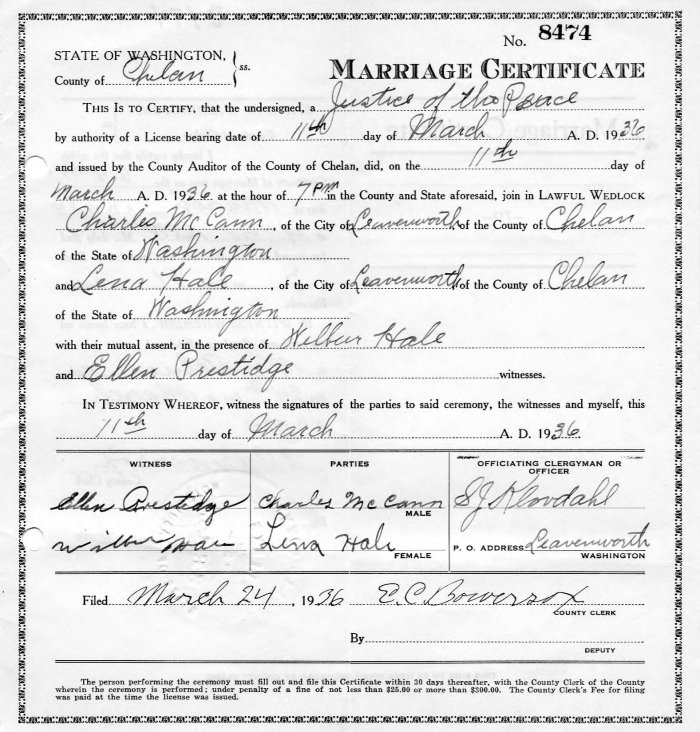 No. 8474
STATE OF WASHINGTON,
County of Chelan } ss.
MARRIAGE CERTIFICATE
THIS IS TO CERTIFY, that the undersigned, a Justice of the Peace
by authority of a License bearing date of 11th day of March A. D. 1936
and issued by the County Auditor of the County of Chelan, did, on the 11th day of
March A. D. 1936 at the hour of 7 PM in the County and State aforesaid, join in LAWFUL WEDLOCK
Charles McCann, of the City of Leavenworth of the County of Chelan
of the State of Washington
and Lena Hale, of the City of Leavenworth of the County of Chelan
of the State of Washington
with their mutual assent, in the presence of Wilbur Hale
and Ellen Prestidge witnesses.
IN TESTIMONY WHEREOF, witness the signatures of the parties to said ceremony, the witnesses and myself, this
11th day of March A. D. 1936.
WITNESS PARTIES OFFICIATING CLERGYMAN OR OFFICER
Ellen Prestidge Charles McCann S J Klovdahl
MALE
Wilbur Hale Lena Hale P. O. ADDRESS Leavenworth
FEMALE WASHINGTON
Filed March 24, 1936 E. C. Bowersox
COUNTY CLERK
By
DEPUTY
The person performing the ceremony must fill out and file this Certificate within 30 days thereafter, with the County Clerk of the County
wherein the ceremony is performed; under penalty of a fine of not less than $25.00 or more than $300.00. The County Clerk's Fee for filing
was paid at the time the license was issued.